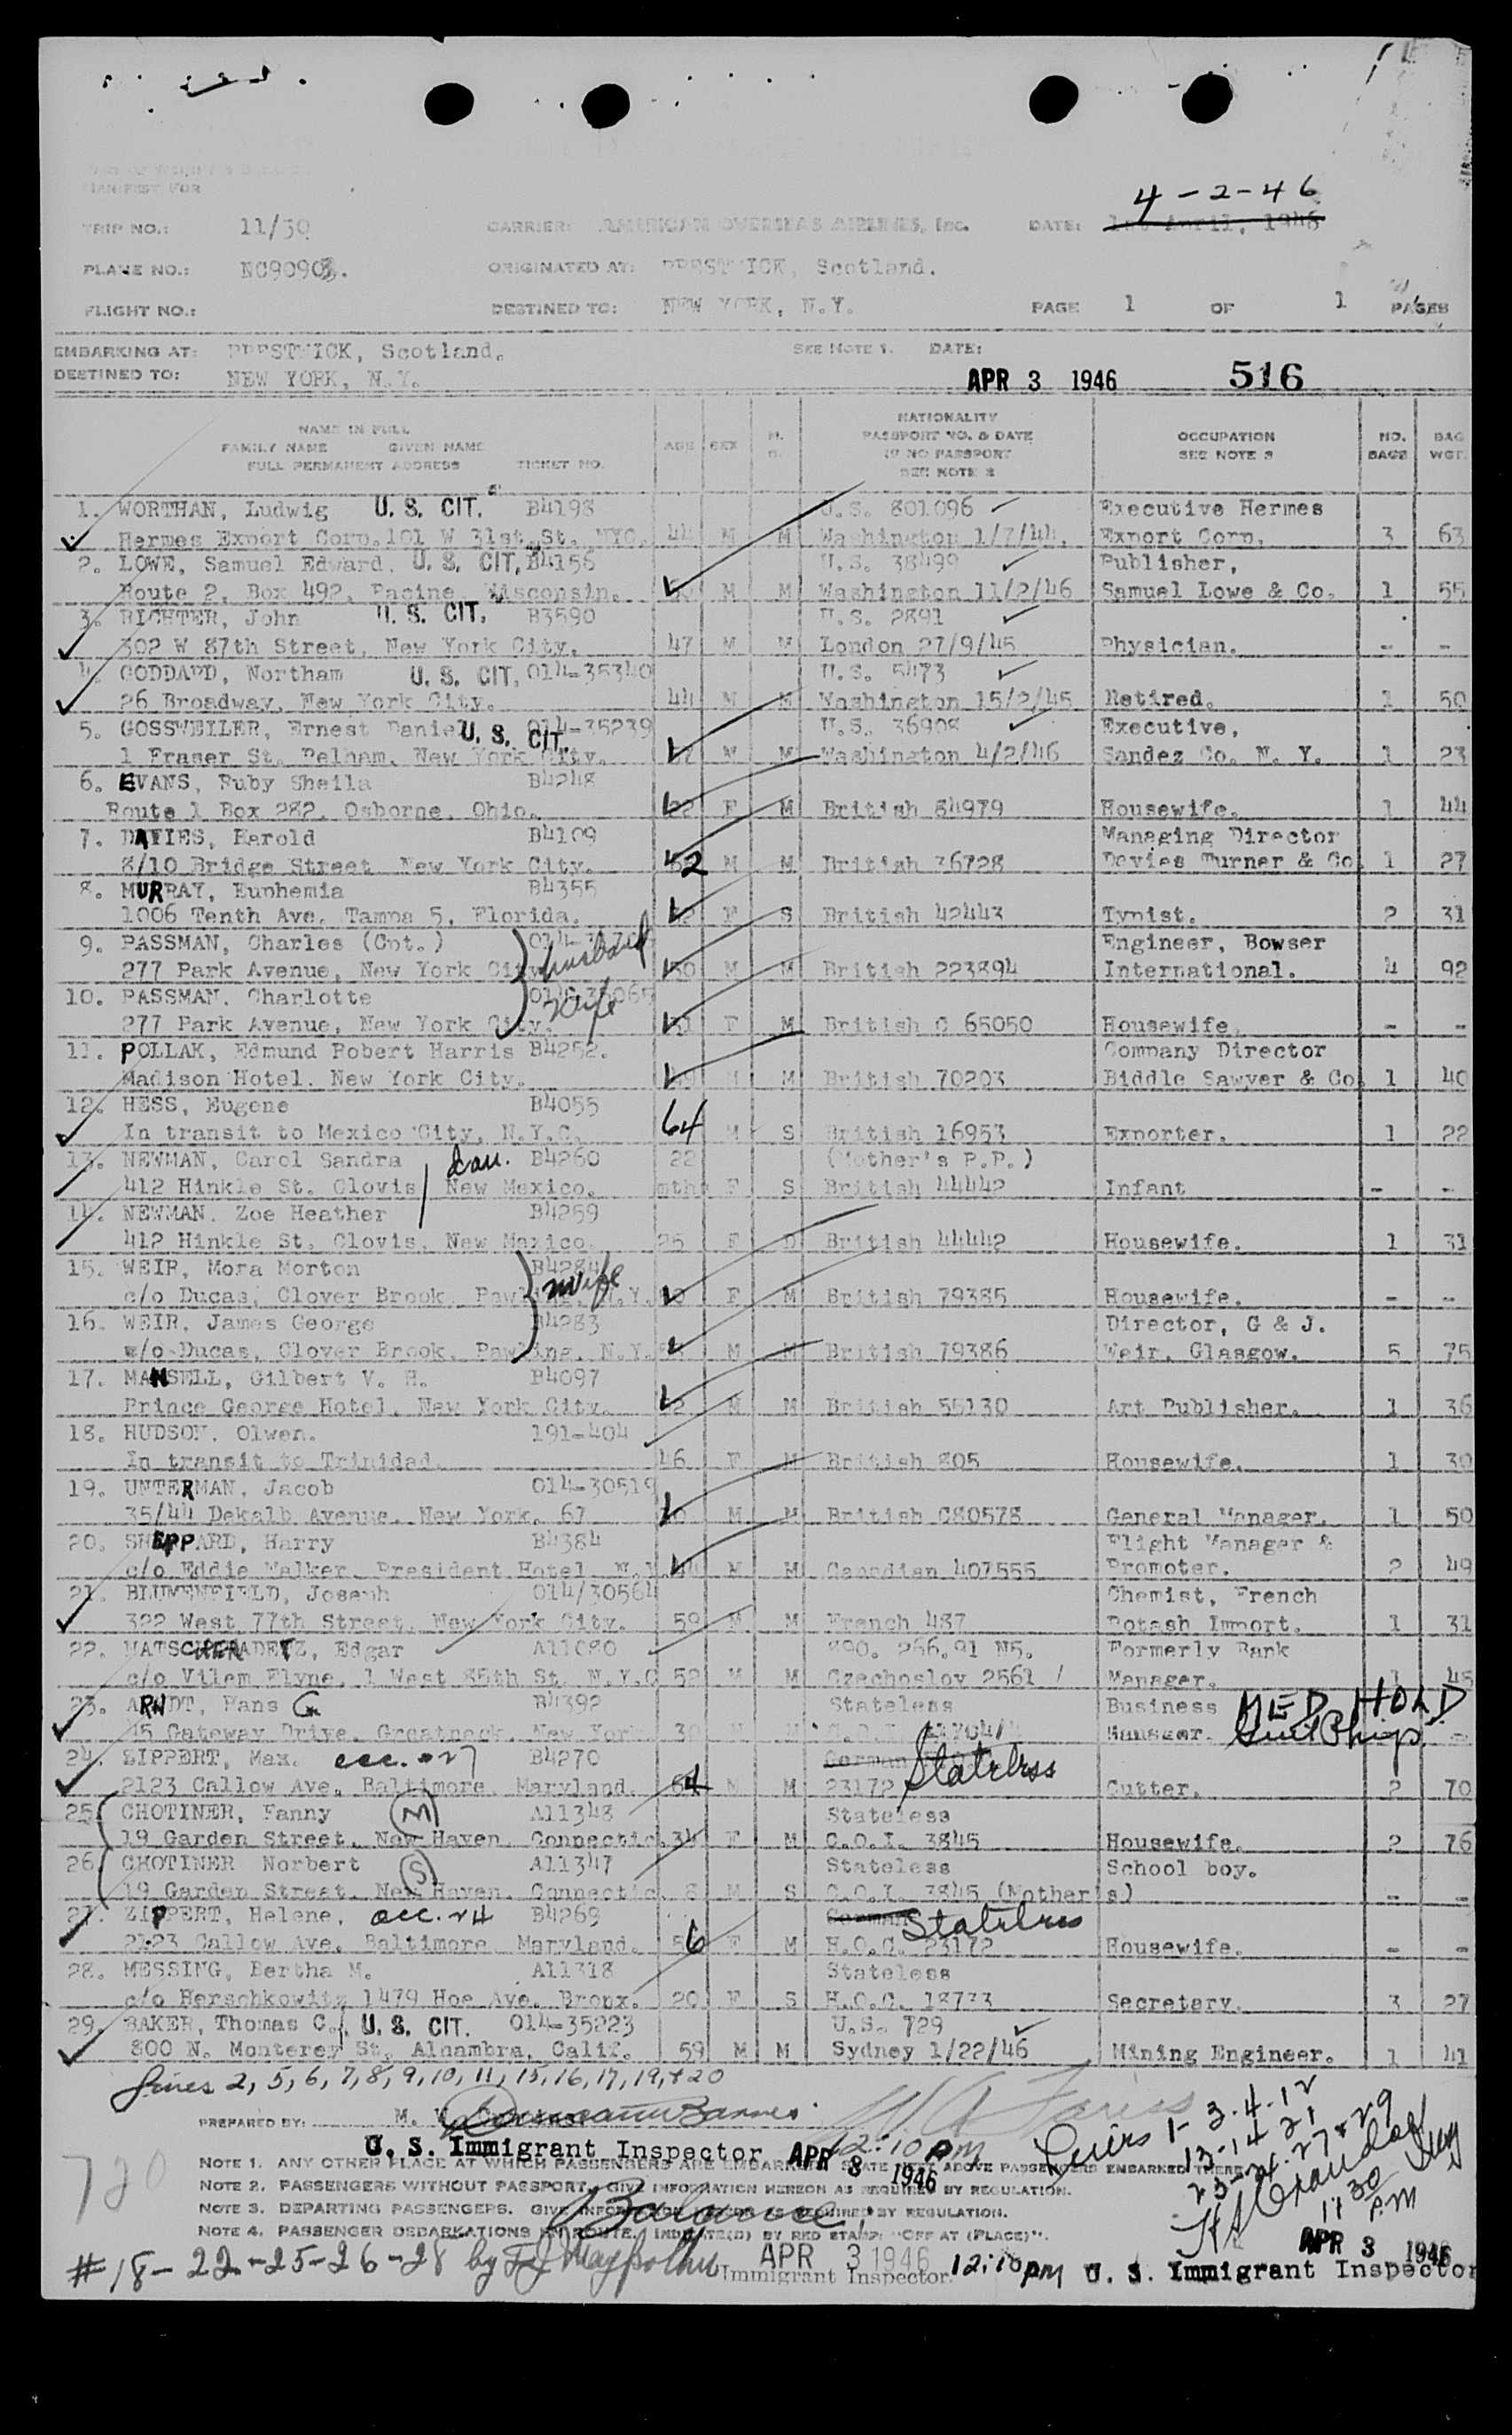 4-2-46
MANIFEST FOR
TRIP NO.: 11/30 CARRIER: AMERICAN OVERSEAS AIRLINES, Inc. DATE: 1st April, 1946
PLANE NO.: NC90903. ORIGINATED AT: PRESTWICK, Scotland.
FLIGHT NO.: DESTINED TO: NEW YORK, N.Y. PAGE 1 OF 1 PAGES
EMBARKING AT: PRESTWICK, Scotland. SEE NOTE 1. DATE:
DESTINED TO: NEW YORK, N.Y. APR 3 1946 516
NAME IN FULL NATIONALITY
FAMILY NAME GIVEN NAME AGE SEX M. PASSPORT NO. & DATE OCCUPATION NO. BAG
FULL PERMANENT ADDRESS TICKET NO. IF NO PASSPORT SEE NOTE 3 BAGS WGT.
SEE NOTE 2
1. WORTHAN, Ludwig U. S. CIT. B4198 U.S. 801096 Executive Hermes
Hermes Export Corp. 101 W 31st. St. NYC. 44 M M Washington 1/7/44. Export Corp. 3 63
2. LOWE, Samuel Edward. U. S. CIT. B4156 U.S. 38499 Publisher,
Route 2, Box 492, Racine, Wisconsin. M M Washington 11/2/46 Samuel Lowe & Co. 1 55
3. RICHTER, John U. S. CIT. B3590 U.S. 2891
302 W 87th Street, New York City. 47 M M London 27/9/45 Physician. - -
4. GODDARD, Northam U. S. CIT. 014-35340 U.S. 5473
26 Broadway, New York City. 44 M M Washington 15/2/45 Retired. 1 50
5. GOSSWEILER, Ernest Daniel U. S. CIT. 014-35239 U.S. 36908 Executive,
1 Fraser St. Pelham, New York City. M M Washington 4/2/46 Sandez Co. N. Y. 1 23
6. EVANS, Ruby Sheila B4248
Route 1 Box 282, Osborne, Ohio. 22 F M British 84979 Housewife. 1 44
7. DAVIES, Harold B4109 Managing Director
8/10 Bridge Street New York City. 52 M M British 36728 Davies Turner & Co. 1 27
8. MURRAY, Euphemia B4355
1006 Tenth Ave. Tampa 5, Florida. F S British 42443 Typist. 2 31
9. PASSMAN, Charles (Cpt.) husband Engineer, Bowser
277 Park Avenue, New York City. M M British 223894 International. 4 92
10. PASSMAN, Charlotte wife
277 Park Avenue, New York City. F M British C 65050 Housewife. - -
11. POLLAK, Edmund Robert Harris B4252. Company Director
Madison Hotel, New York City. M M British 70203 Biddle Sawyer & Co. 1 40
12. HESS, Eugene B4055
In transit to Mexico City, N.Y.C. 64 M S British 16953 Exporter. 1 22
13. NEWMAN, Carol Sandra dau. B4260 22 (Mother's P.P.)
412 Hinkle St. Clovis, New Mexico. mths F S British 44442 Infant - -
14. NEWMAN, Zoe Heather B4259
412 Hinkle St. Clovis, New Mexico. 25 F D British 44442 Housewife. 1 31
15. WEIR, Mora Morton B4284 wife
c/o Ducas, Clover Brook, Pawling, N.Y. F M British 79385 Housewife. - -
16. WEIR, James George B4283 Director, G & J.
c/o Ducas, Clover Brook, Pawling, N.Y. M M British 79386 Weir, Glasgow. 5 75
17. MANSELL, Gilbert V. H. B4097
Prince George Hotel, New York City. M M British 55130 Art Publisher. 1 36
18. HUDSON, Olwen. 191-404
In transit to Trinidad. 46 F M British 805 Housewife. 1 30
19. UNTERMAN, Jacob 014-30519
35/44 Dekalb Avenue, New York, 67 M M British C80578 General Manager. 1 50
20. SHEPPARD, Harry B4384 Flight Manager &
c/o Eddie Walker, President Hotel, N.Y. M M Canadian 407555 Promoter. 2 49
21. BLUMENFIELD, Joseph 014/30564 Chemist, French
322 West 77th Street, New York City. 59 M M French 487 Potash Import. 1 31
22. Edgar A11080 890. 266.91 N5. Formerly Bank
c/o Vilem Flyne, 1 West 85th St. N.Y.C 52 M M Czechoslov 2561 / Manager. 1 45
23. ARNDT, Hans G. B4392 Stateless Business MED HOLD
45 Gateway Drive, Greatneck, New York 30 M M Manager. -
24. ZIPPERT, Max. acc. 27 B4270 German Stateless
2123 Callow Ave. Baltimore, Maryland. 64 M M 23172 Cutter. 2 70
25. CHOTINER, Fanny (M) A11348 Stateless
19 Garden Street, New Haven, Connectic. 34 F M C.O.I. 3845 Housewife. 2 76
26. CHOTINER Norbert (S) A11347 Stateless School boy.
19 Garden Street, New Haven, Connectic. 8 M S C.O.I. 3845 (Mother's) - -
27. ZIPPERT, Helene, acc. 24 B4269 German Stateless
2123 Callow Ave. Baltimore Maryland. 56 F M H.O.C. 23172 Housewife. - -
28. MESSING, Bertha M. A11318 Stateless
c/o Herschkowitz 1479 Hoe Ave. Bronx. 20 F S H.O.C. 18733 Secretary. 3 27
29. BAKER, Thomas C. U. S. CIT. 014-35223 U.S. 729
800 N. Monterey St, Alhambra, Calif. 59 M M Sydney 1/22/46 Mining Engineer. 1 41
Lines 2, 5, 6, 7, 8, 9, 10, 11, 15, 16, 17, 19, + 20
PREPARED BY: M.
Lines 1-3-4-12
13-14-21
23-24-27 & 29
U. S. Immigrant Inspector APR 3 1946 12:10 PM
NOTE 1. ANY OTHER PLACE AT WHICH PASSENGERS ARE EMBARKED. STATE NEXT ABOVE PASSENGERS EMBARKED THERE.
NOTE 2. PASSENGERS WITHOUT PASSPORT. GIVE INFORMATION HEREON AS REQUIRED BY REGULATION.
NOTE 3. DEPARTING PASSENGERS. GIVE INFORMATION HEREON AS REQUIRED BY REGULATION.
NOTE 4. PASSENGER DEBARKATIONS EN ROUTE. INDICATE(D) BY RED STAMP: "OFF AT (PLACE)".
720
Balance
11 30 PM
APR 3 1946
# 18-22-25-26-28 by
APR 3 1946
Immigrant Inspector. 12:10 PM U. S. Immigrant Inspector